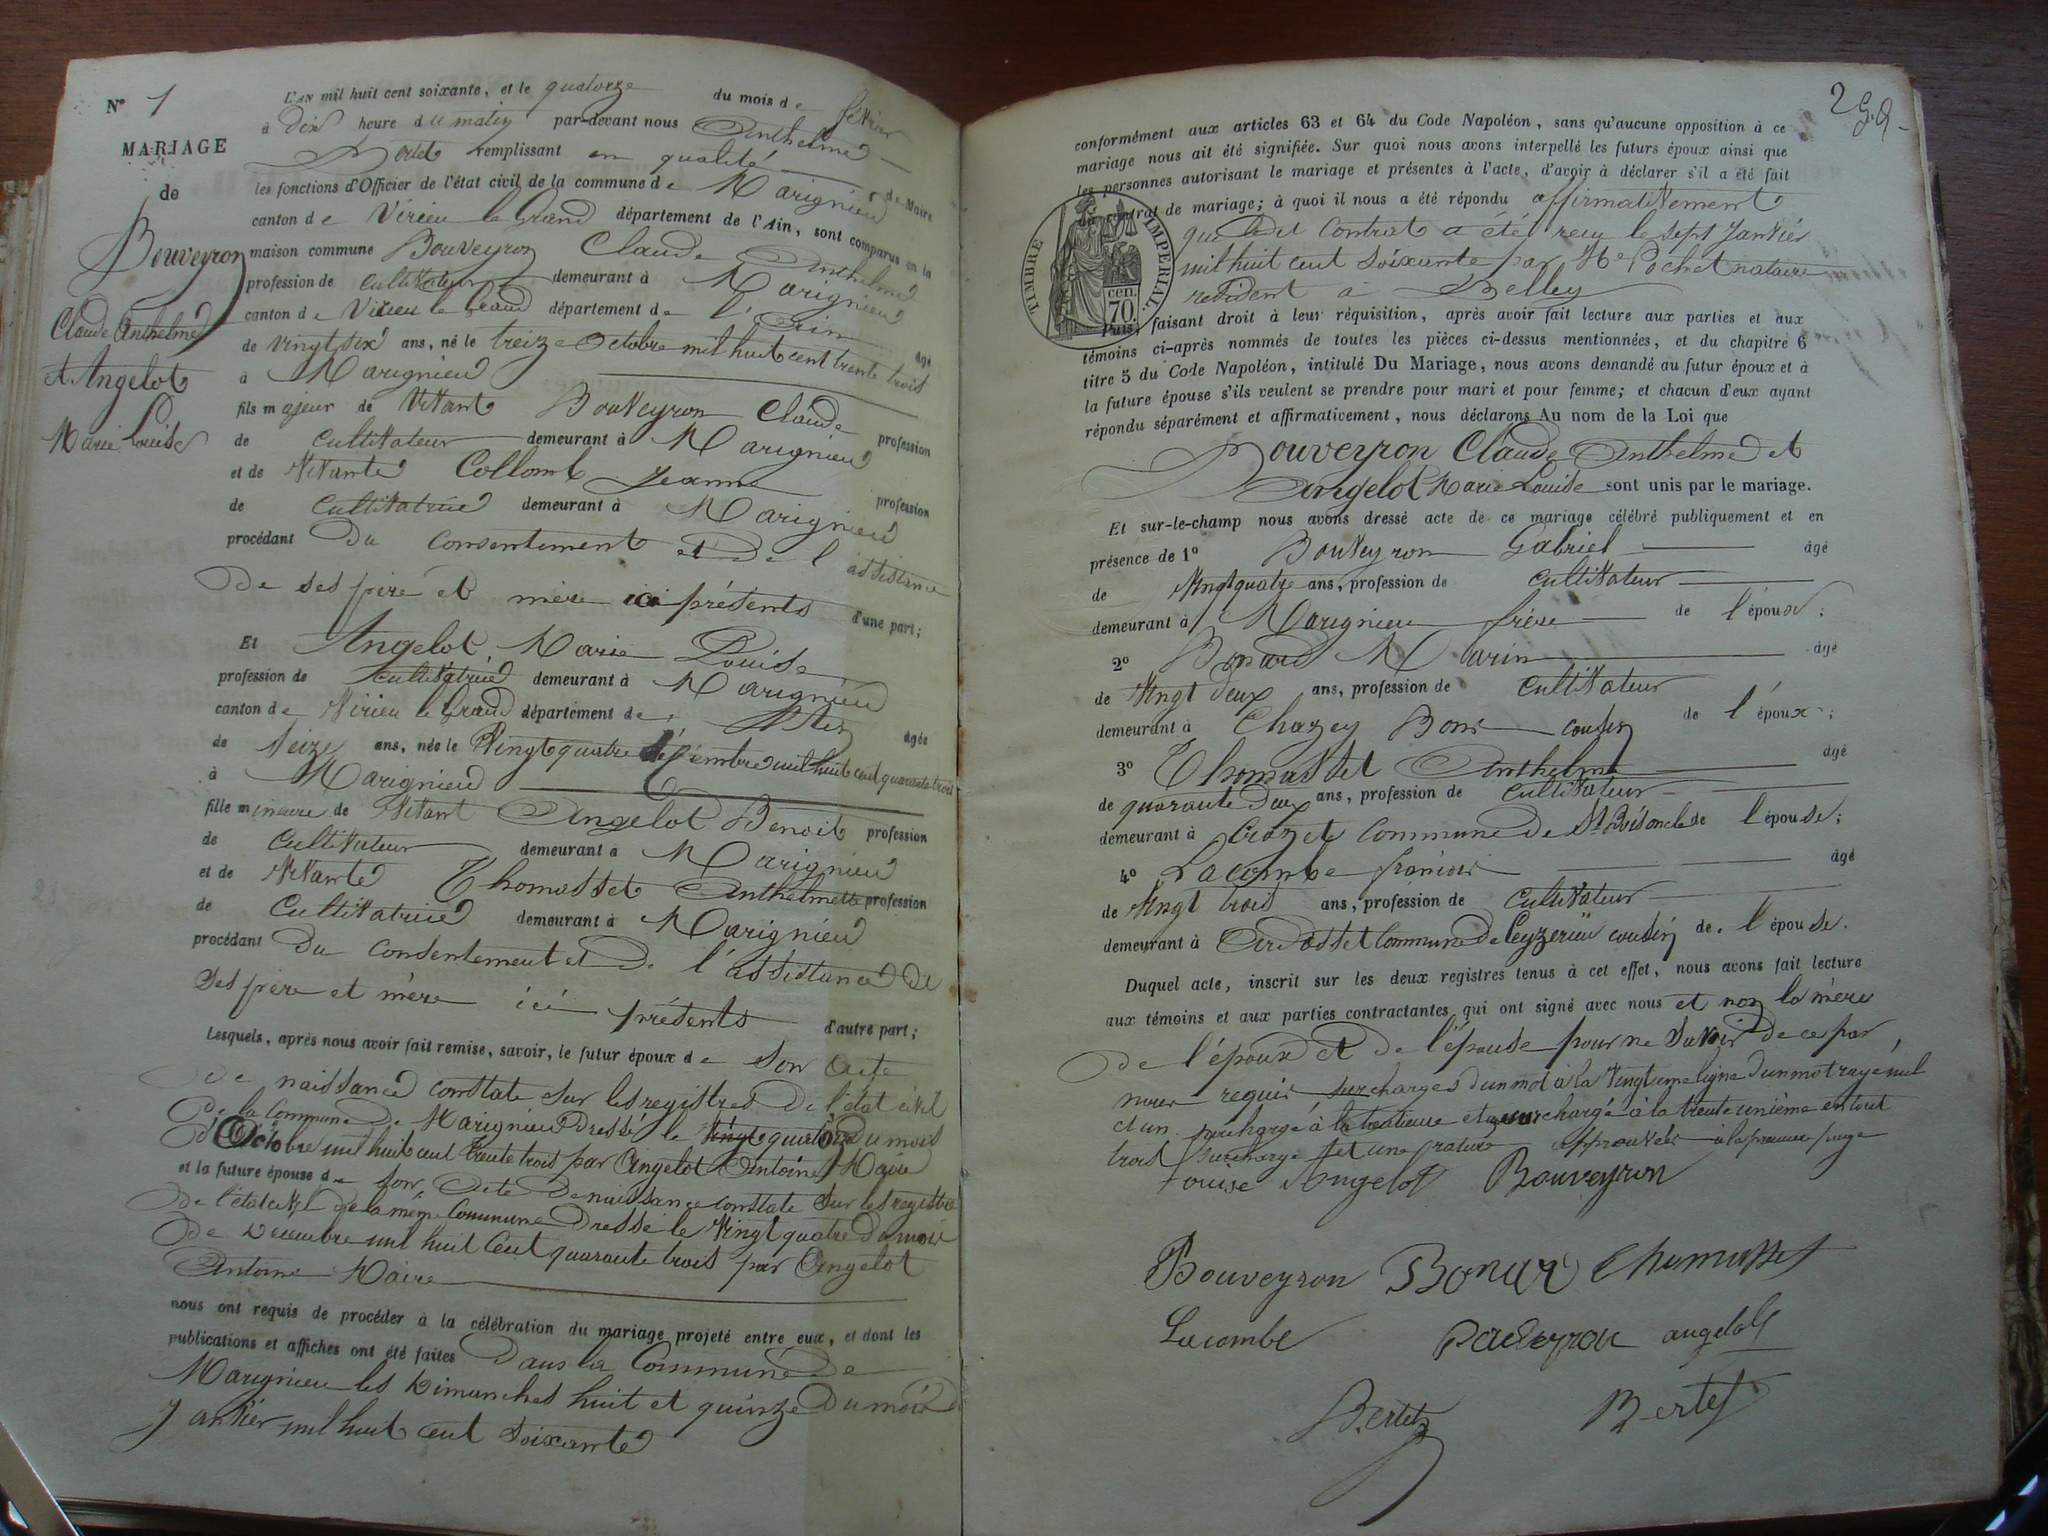 N° 1
MARIAGE
de
Bouveyron
Claude Anthelme
et Angelot
Marie Louise
L'AN mil huit cent soixante, et le quatorze du mois de février
à dix heure du matin par-devant nous Anthelme
remplissant en qualité de Maire
les fonctions d'Officier de l'état civil de la commune de Marignieu
canton de Virieu le Grand département de l'Ain, sont comparus en la
maison commune Bouveyron Claude Anthelme
profession de cultivateur demeurant à Marignieu
canton de Virieu le Grand département de l'Ain âgé
de vingt six ans, né le treize Octobre mil huit cent trente trois
à Marignieu
fils majeur de vivant Bouveyron Claude profession
de cultivateur demeurant à Marignieu
et de vivante Collomb Jeanne profession
de cultivatrice demeurant à Marignieu
procédant du consentement et de l'assistance
de ses père et mère ici présents d'une part;
Et Angelot Marie Louise
profession de cultivatrice demeurant à Marignieu
canton de Virieu le Grand département de l'Ain âgée
de seize ans, née le vingt quatre décembre mil huit cent quarante trois
à Marignieu
fille mineure de vivant Angelot Benoit profession
de cultivateur demeurant à Marignieu
et de vivante Thomasset Anthelmette profession
de cultivatrice demeurant à Marignieu
procédant du consentement et de l'assistance de
ses père et mère ici présents d'autre part;
Lesquels, après nous avoir fait remise, savoir, le futur époux de son acte
de naissance constaté sur les registres de l'état civil
de la commune de Marignieu dressé le vingt quatorze du mois
d'Octobre mil huit cent trente trois par Angelot Antoine Maire
et la future épouse de son acte de naissance constaté sur les registre
de l'état civil de la même commune dressé le vingt quatre du mois
de Décembre mil huit cent quarante trois par Angelot
Antoine Maire
nous ont requis de procéder à la célébration du mariage projeté entre eux, et dont les
publications et affiches ont été faites dans la Commune de
Marignieu les Dimanches huit et quinze du mois de
Janvier mil huit cent soixante
conformément aux articles 63 et 64 du Code Napoléon, sans qu'aucune opposition à ce
mariage nous ait été signifiée. Sur quoi nous avons interpellé les futurs époux ainsi que
les personnes autorisant le mariage et présentes à l'acte, d'avoir à déclarer s'il a été fait
un contrat de mariage; à quoi il nous a été répondu affirmativement
que ledit contrat a été reçu le sept Janvier
mil huit cent soixante par Me Pochet notaire
résident à Belley
TIMBRE IMPERIAL.
cen.
70.
Puis, faisant droit à leur réquisition, après avoir fait lecture aux parties et aux
témoins ci-après nommés de toutes les pièces ci-dessus mentionnées, et du chapitre 6
titre 5 du Code Napoléon, intitulé Du Mariage, nous avons demandé au futur époux et à
la future épouse s'ils veulent se prendre pour mari et pour femme; et chacun d'eux ayant
répondu séparément et affirmativement, nous déclarons Au nom de la Loi que
Bouveyron Claude Anthelme et
Angelot Marie Louise sont unis par le mariage.
Et sur-le-champ nous avons dressé acte de ce mariage célébré publiquement et en
présence de 1° Bouveyron Gabriel âgé
de vingt quatre ans, profession de cultivateur
demeurant à Marignieu frère de l'époux;
2° Bonard Marin âgé
de vingt deux ans, profession de cultivateur
demeurant à Chazey Bons cousin de l'époux;
3° Thomasset Anthelme âgé
de quarante deux ans, profession de cultivateur
demeurant à Crozet commune de de l'épouse;
4° Lacombe françois âgé
de vingt trois ans, profession de cultivateur
demeurant à Ardosset commune de Ceyzerieu cousin de l'épouse.
Duquel acte, inscrit sur les deux registres tenus à cet effet, nous avons fait lecture
aux témoins et aux parties contractantes qui ont signé avec nous et non la mère
de l'époux et de l'épouse pour ne savoir de ce par
nous requis surcharges d'un mot à la vingtième ligne d'un mot rayé nul
et un surchargé à la et surchargé à la trente unième en tout
trois surcharge et une rature approuvées à la première page
Louise Angelot Bouveyron
Bouveyron Bonar Thomasset
Lacombe Bouveyron angelot
Bertet Bertet